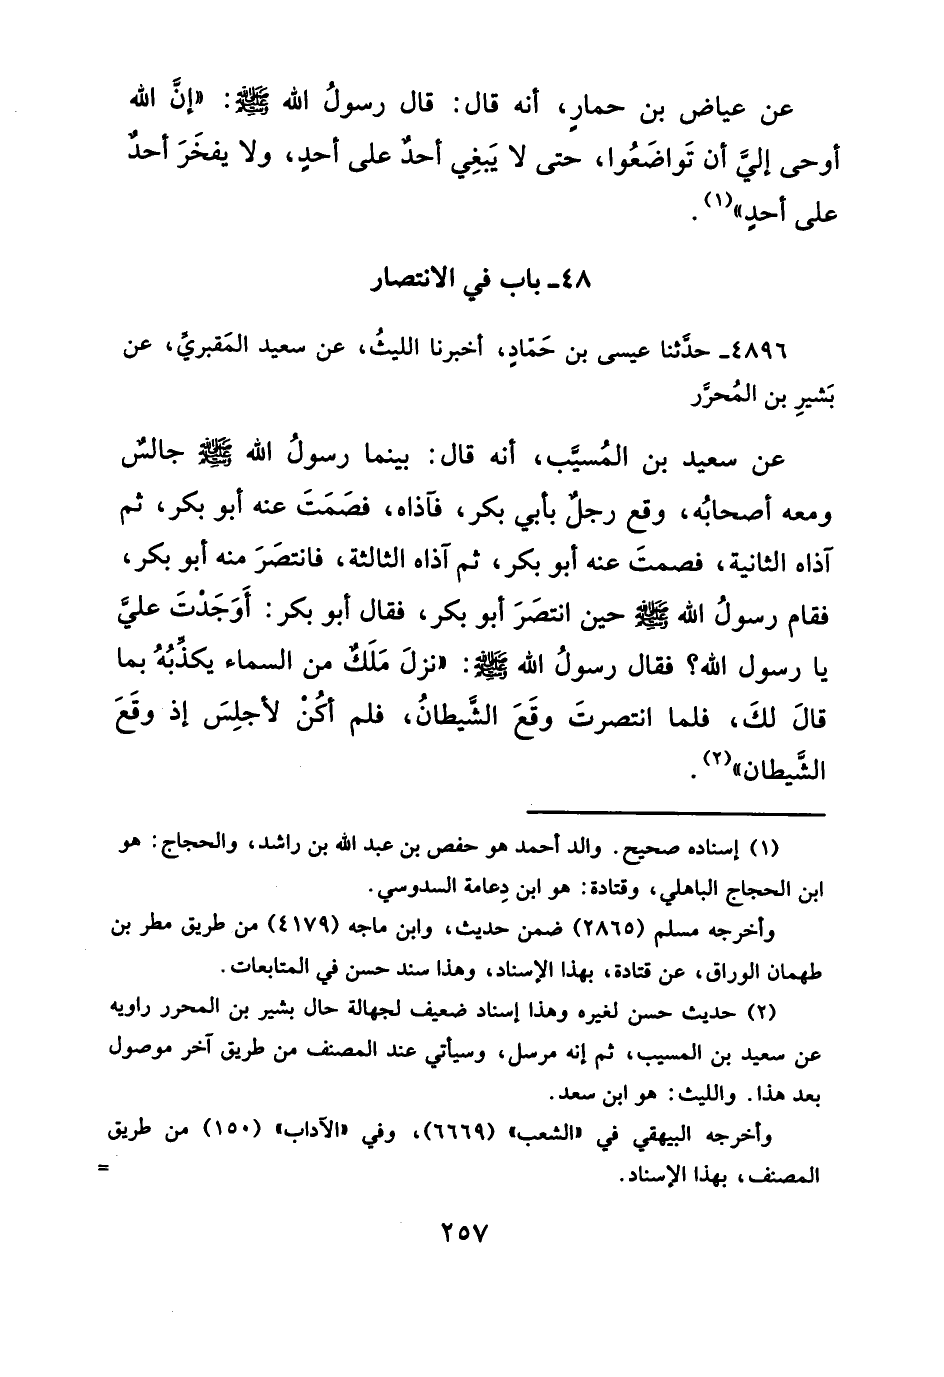 عن عياض بن حمارٍ، أنه قال: قال رسولُ الله ﷺ: «إنَّ الله
أوحى إليَّ أن تَواضَعُوا، حتى لا يَبغِي أحدٌ على أحدٍ، ولا يفخَرَ أحدٌ
على أحدٍ»(١).
٤٨ـ باب في الانتصار
٤٨٩٦ـ حدَّثنا عيسى بن حَمّادٍ، أخبرنا الليثُ، عن سعيد المَقبريِّ، عن
بَشيرِ بن المُحرَّر
عن سعيد بن المُسيَّب، أنه قال: بينما رسولُ الله ﷺ جالسٌ
ومعه أصحابُه، وقع رجلٌ بأبي بكر، فآذاه، فصَمَتَ عنه أبو بكر، ثم
آذاه الثانية، فصمتَ عنه أبو بكر، ثم آذاه الثالثة، فانتصَرَ منه أبو بكر،
فقام رسولُ الله ﷺ حين انتصَرَ أبو بكر، فقال أبو بكر: أَوَجَدْتَ عليَّ
يا رسول الله؟ فقال رسولُ الله ﷺ: «نزلَ مَلَكٌ من السماء يكذِّبُهُ بما
قالَ لكَ، فلما انتصرتَ وقَعَ الشَّيطانُ، فلم أكُنْ لأجلِسَ إذ وقَعَ
الشَّيطان»(٢).
(١) إسناده صحيح. والد أحمد هو حفص بن عبد الله بن راشد، والحجاج: هو
ابن الحجاج الباهلي، وقتادة: هو ابن دِعامة السدوسي.
وأخرجه مسلم (٢٨٦٥) ضمن حديث، وابن ماجه (٤١٧٩) من طريق مطر بن
طهمان الوراق، عن قتادة، بهذا الإسناد، وهذا سند حسن في المتابعات.
(٢) حديث حسن لغيره وهذا إسناد ضعيف لجهالة حال بشير بن المحرر راويه
عن سعيد بن المسيب، ثم إنه مرسل، وسيأتي عند المصنف من طريق آخر موصول
بعد هذا. والليث: هو ابن سعد.
وأخرجه البيهقي في «الشعب» (٦٦٦٩)، وفي «الآداب» (١٥٠) من طريق
المصنف، بهذا الإسناد. =
٢٥٧